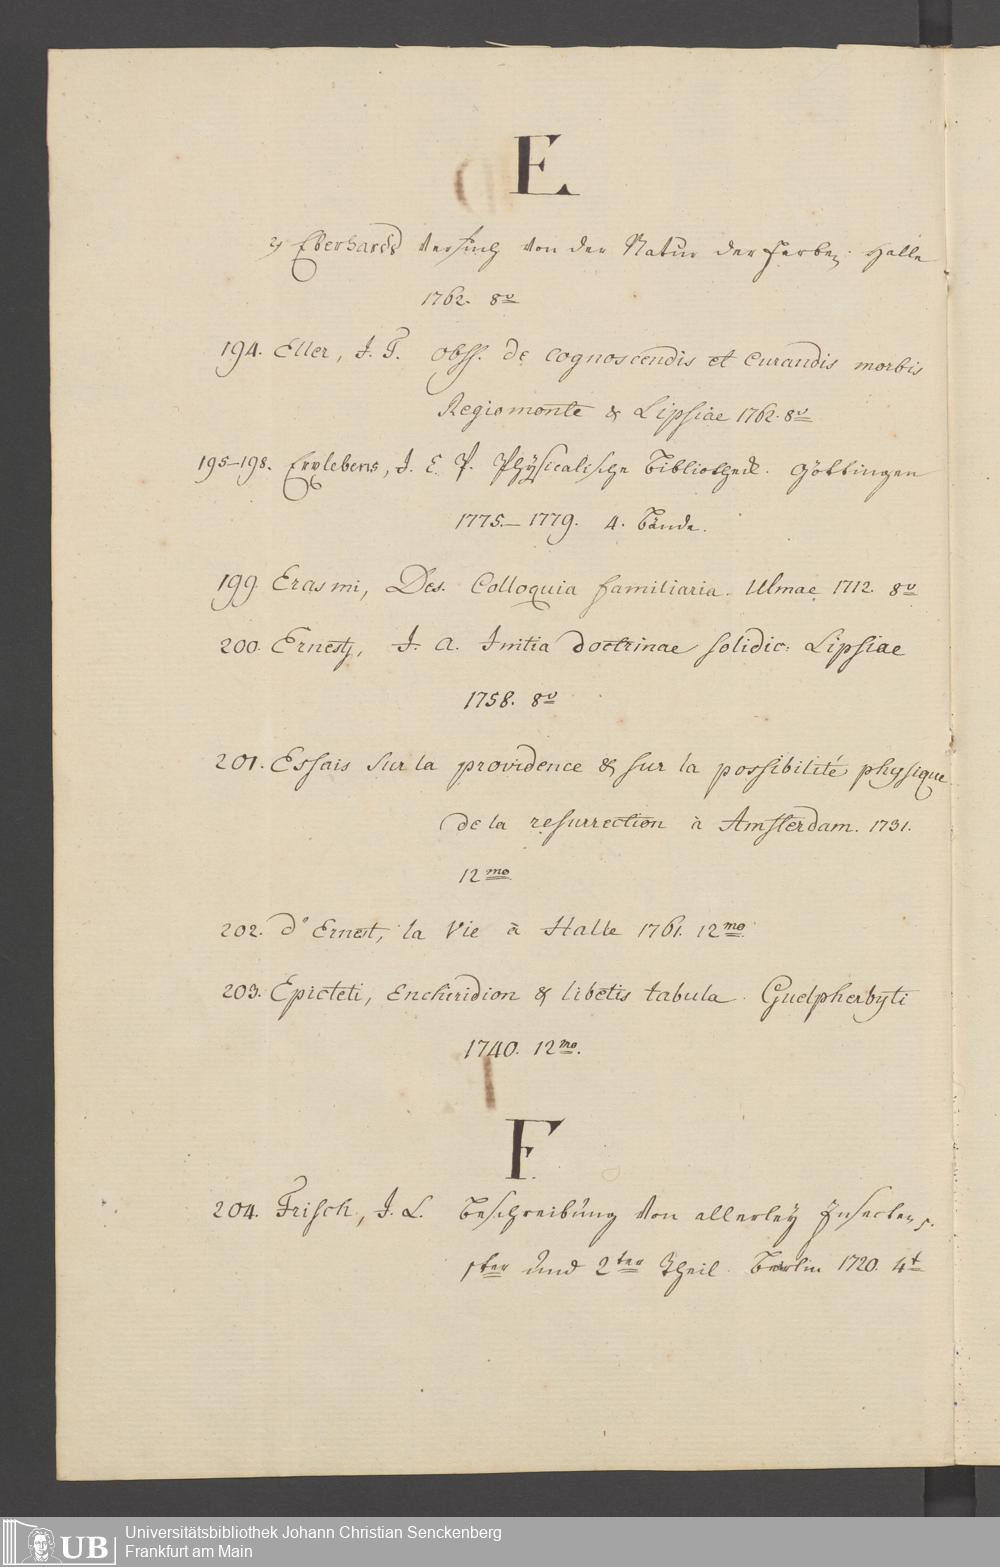 E
2) Eberhards Versuch von der Natur der Farben. Halle
1762. 8o
194. Eller, J. T. obss. de cognoscendis et curandis morbis
Regiomonte & Lipsiae 1762. 8o
195–198. Erxlebens, J. C. P. Physicalische Bibliothek. Göttingen
1775.–1779. 4. Bände.
199 Erasmi, Des. Colloquia familiaria. Ulmae 1712. 8o
200. Ernesti, J. A. Initia doctrinae solidic: Lipsiae
1758. 8o
201. Essais sur la providence & sur la possibilité physique
de la resurrection à Amsterdam. 1731.
12mo
202. d'Ernest, la Vie à Halle 1761. 12mo
203. Epicteti, Encheridion & libetis tabula. Guelpherbyti
1740. 12mo.
F.
204. Frisch, J. L. Beschreibung von allerley Insecten
1ter und 2ter Theil. Berlin 1720. 4t
UB
Universitätsbibliothek Johann Christian Senckenberg
Frankfurt am Main